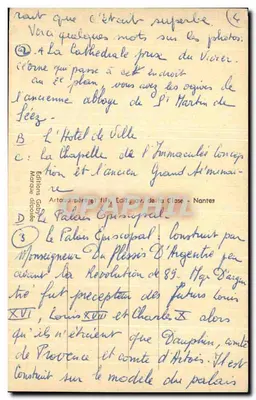 rait que c'était superbe (4
Voici quelques mots sur les photos.
(2) A La Cathédrale prise du Vivier.
L'orne qui passe à cet endroit
au 2e plan, vous avez les ogives de
l'ancienne abbaye de St Martin de
Séez.
B L'Hotel de Ville
C : La Chapelle de l'Immaculée Concep
tion et l'ancien Grand Séminai-
re
D Le Palais Episcopal
(3) le Palais Episcopal - construit par
Monseigneur Du Plessis D'Argentré peu
avant la Révolution de 89. Mgr D'argen
tré fut précepteur des futurs Louis
XVI, Louis XVIII et Charles X alors
qu'ils n'étaient que Dauphin, comte
de Provence et comte d'Artois. Il est
construit sur le modèle du palais
Editions Gaby
Marque déposée
- Nantes